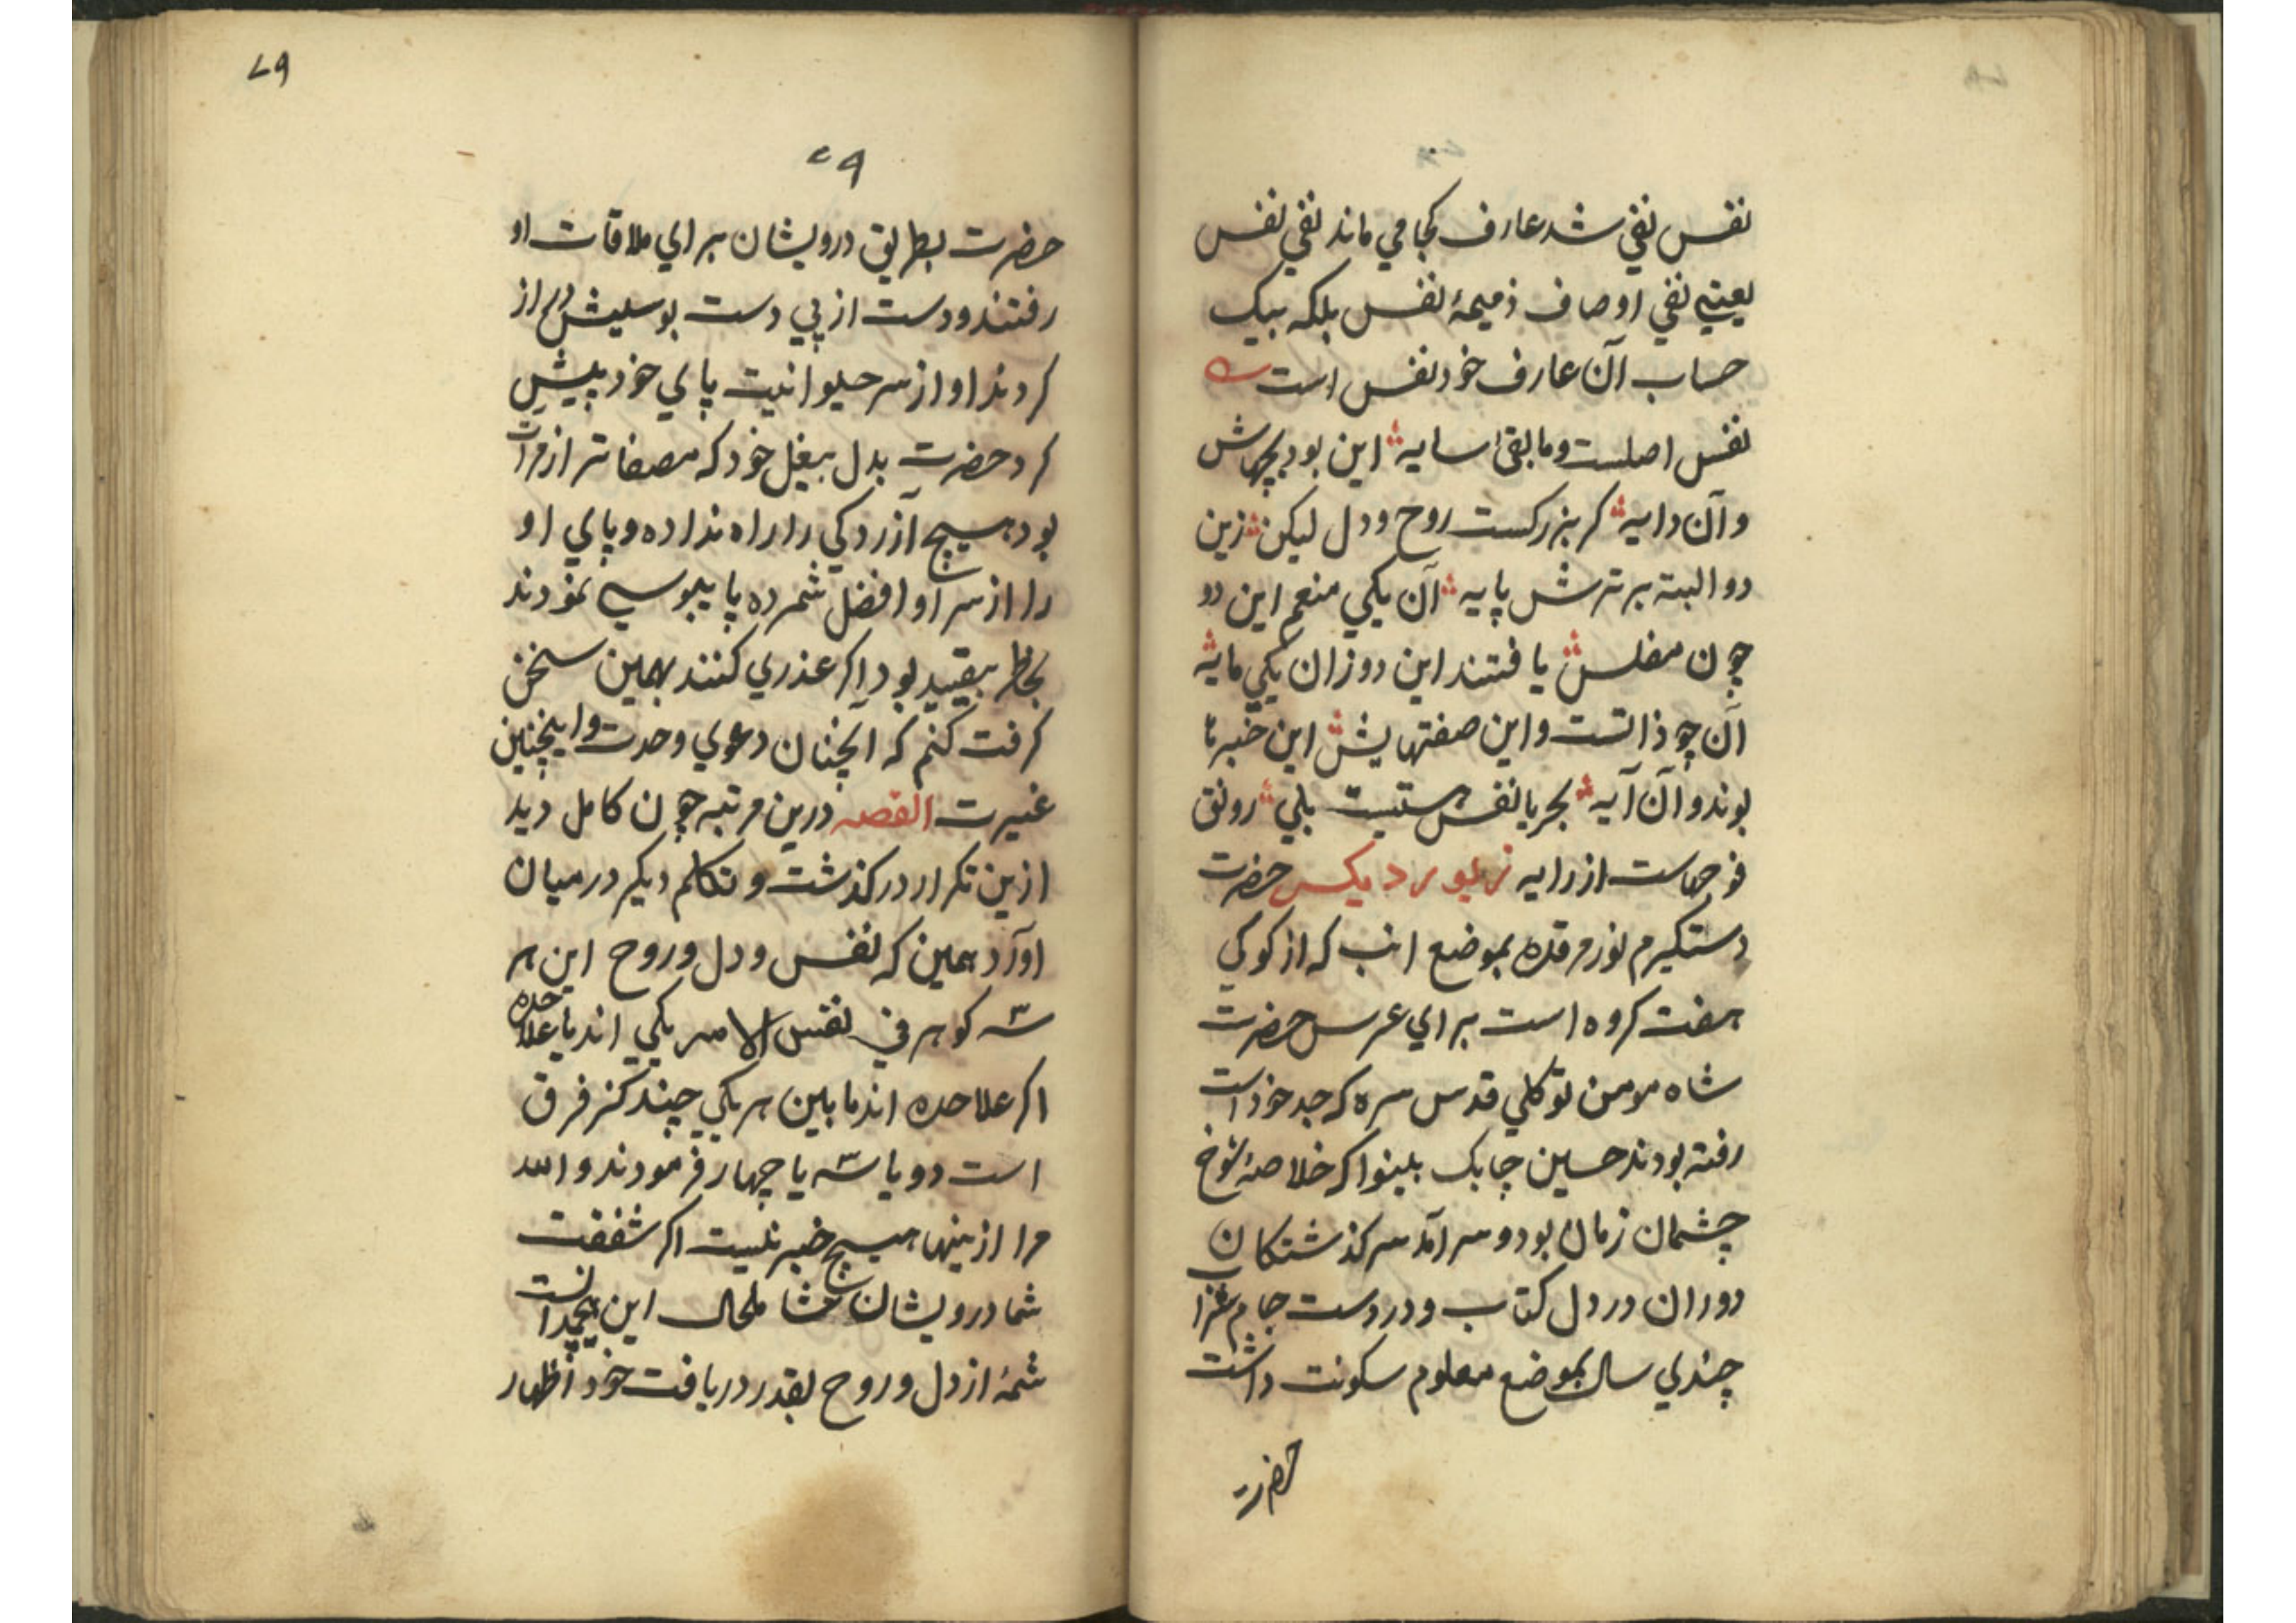 نفس نفي شد عارف کجا مي ماند نفي نفس
يعنے نفي اوصاف ذميمهٔ نفس بلکه بيک
حساب آن عارف خود نفس است
نفس اصلست و مابقی سايه اين بود بچهاش
و آن دايه کر بزرکست روح و دل ليکن زين
دو البته برترش پايه آن يکي منعم اين دو
چون مفلس يافتند اين دو زان يکي مايه
آن چو ذاتست و اين صفتهايش اين خبر تا
بوند و آن آيه بحريا نفس بلي رونق
فوجهاست از رايه زيور ديکر حضرت
دستکيرم نور مرقده بموضع انب که از کوکي
هفت کروه است براي عرس حضرت
شاه مومن توکلي قدس سره که جد خود است
رفته بودند حسين چابک بلينوا که خلاصهٔ شوخ
چشمان زمان بود و سرآمد سرکذشتکان
دوران در دل کتاب و در دست جام غزا
چندي سال بموضع معلوم سکونت داشت
حضرت
۷۹
۷۹
حضرت بطريق درويشان براي ملاقات او
رفتند و دست از پي دست بوسيش دراز
کردند او از سر حيوانيت پاي خود پيش
کرد حضرت بدل بيغل خود که مصفاتر از مرآت
بود هيچ آزردکي را راه نداده و پاي او
را از سر او افضل شمرده پايبوسي نمودند
بخاطر بيقيد بود اکر عذري کنند بهمين سخن
کرفت کنم که آنچنان دعوي وحدت و اينچنين
غيرت القصه درين مرتبه چون کامل ديد
ازين تکرار درکذشت و تکلم ديکر درميان
آورد همين که نفس و دل و روح اين هر
سه کوهر في نفس الامر يکي اند يا علاحده
اکر علاحده اند مابين هر يکي چند کز فرق
است دو يا سه يا چهار فرمودند والله
مرا ازينها هيچ خبر نيست اکر شفقت
شما درويشان شامل حال اين هيچمدانست
شمهٔ از دل و روح بقدر دريافت خود اظهار